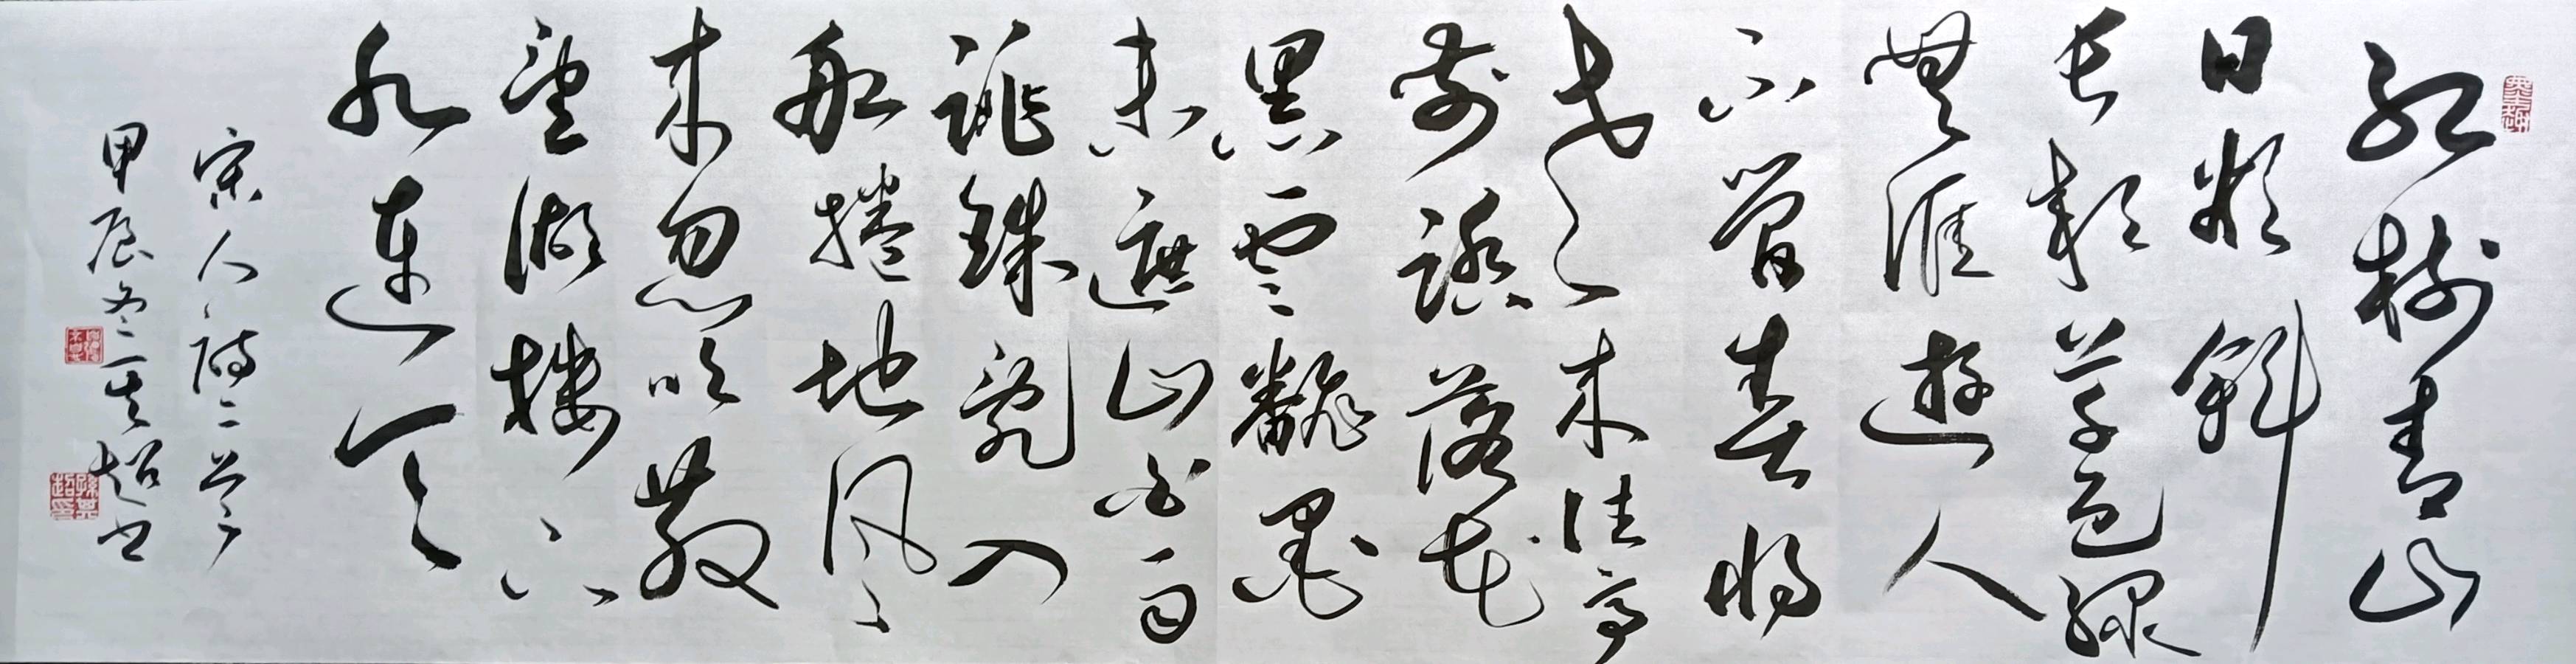 红树青山
日欲斜
长郊草色绿
無涯遊人
不管春将
老来往亭
前踏落花
黑雲翻墨
未遮山白雨
跳珠乱入
船捲地风
来忽吹散
望湖楼下
水連天
宋人诗二首
甲辰冬其超书
孫其超印